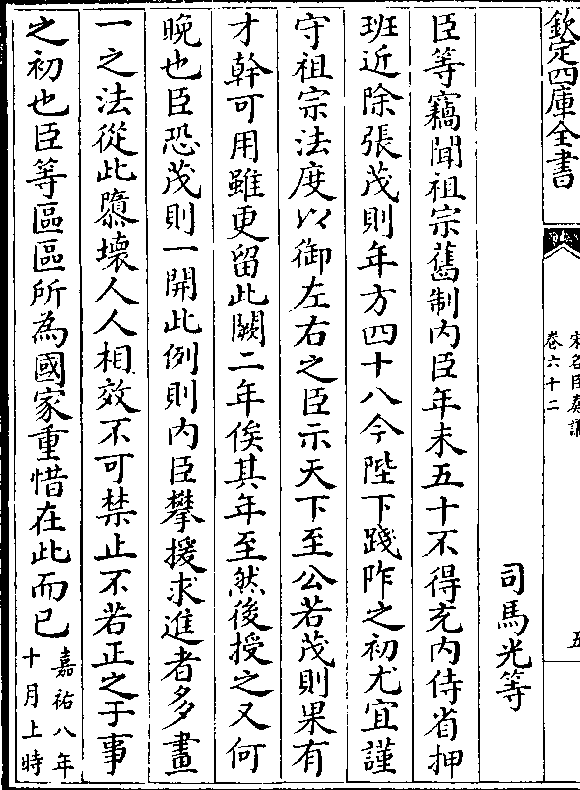 欽定四庫全書
宋名臣奏議
卷六十二
五
司馬光等
臣等竊聞祖宗舊制内臣年未五十不得充内侍省押
班近除張茂則年方四十八今陛下踐阼之初尤宜謹
守祖宗法度以御左右之臣示天下至公若茂則果有
才幹可用雖更留此闕二年俟其年至然後授之又何
晩也臣恐茂則一開此例則内臣攀援求進者多畫
一之法從此隳壊人人相效不可禁止不若正之于事
之初也臣等區區所為國家重惜在此而已嘉祐八年
十月上時